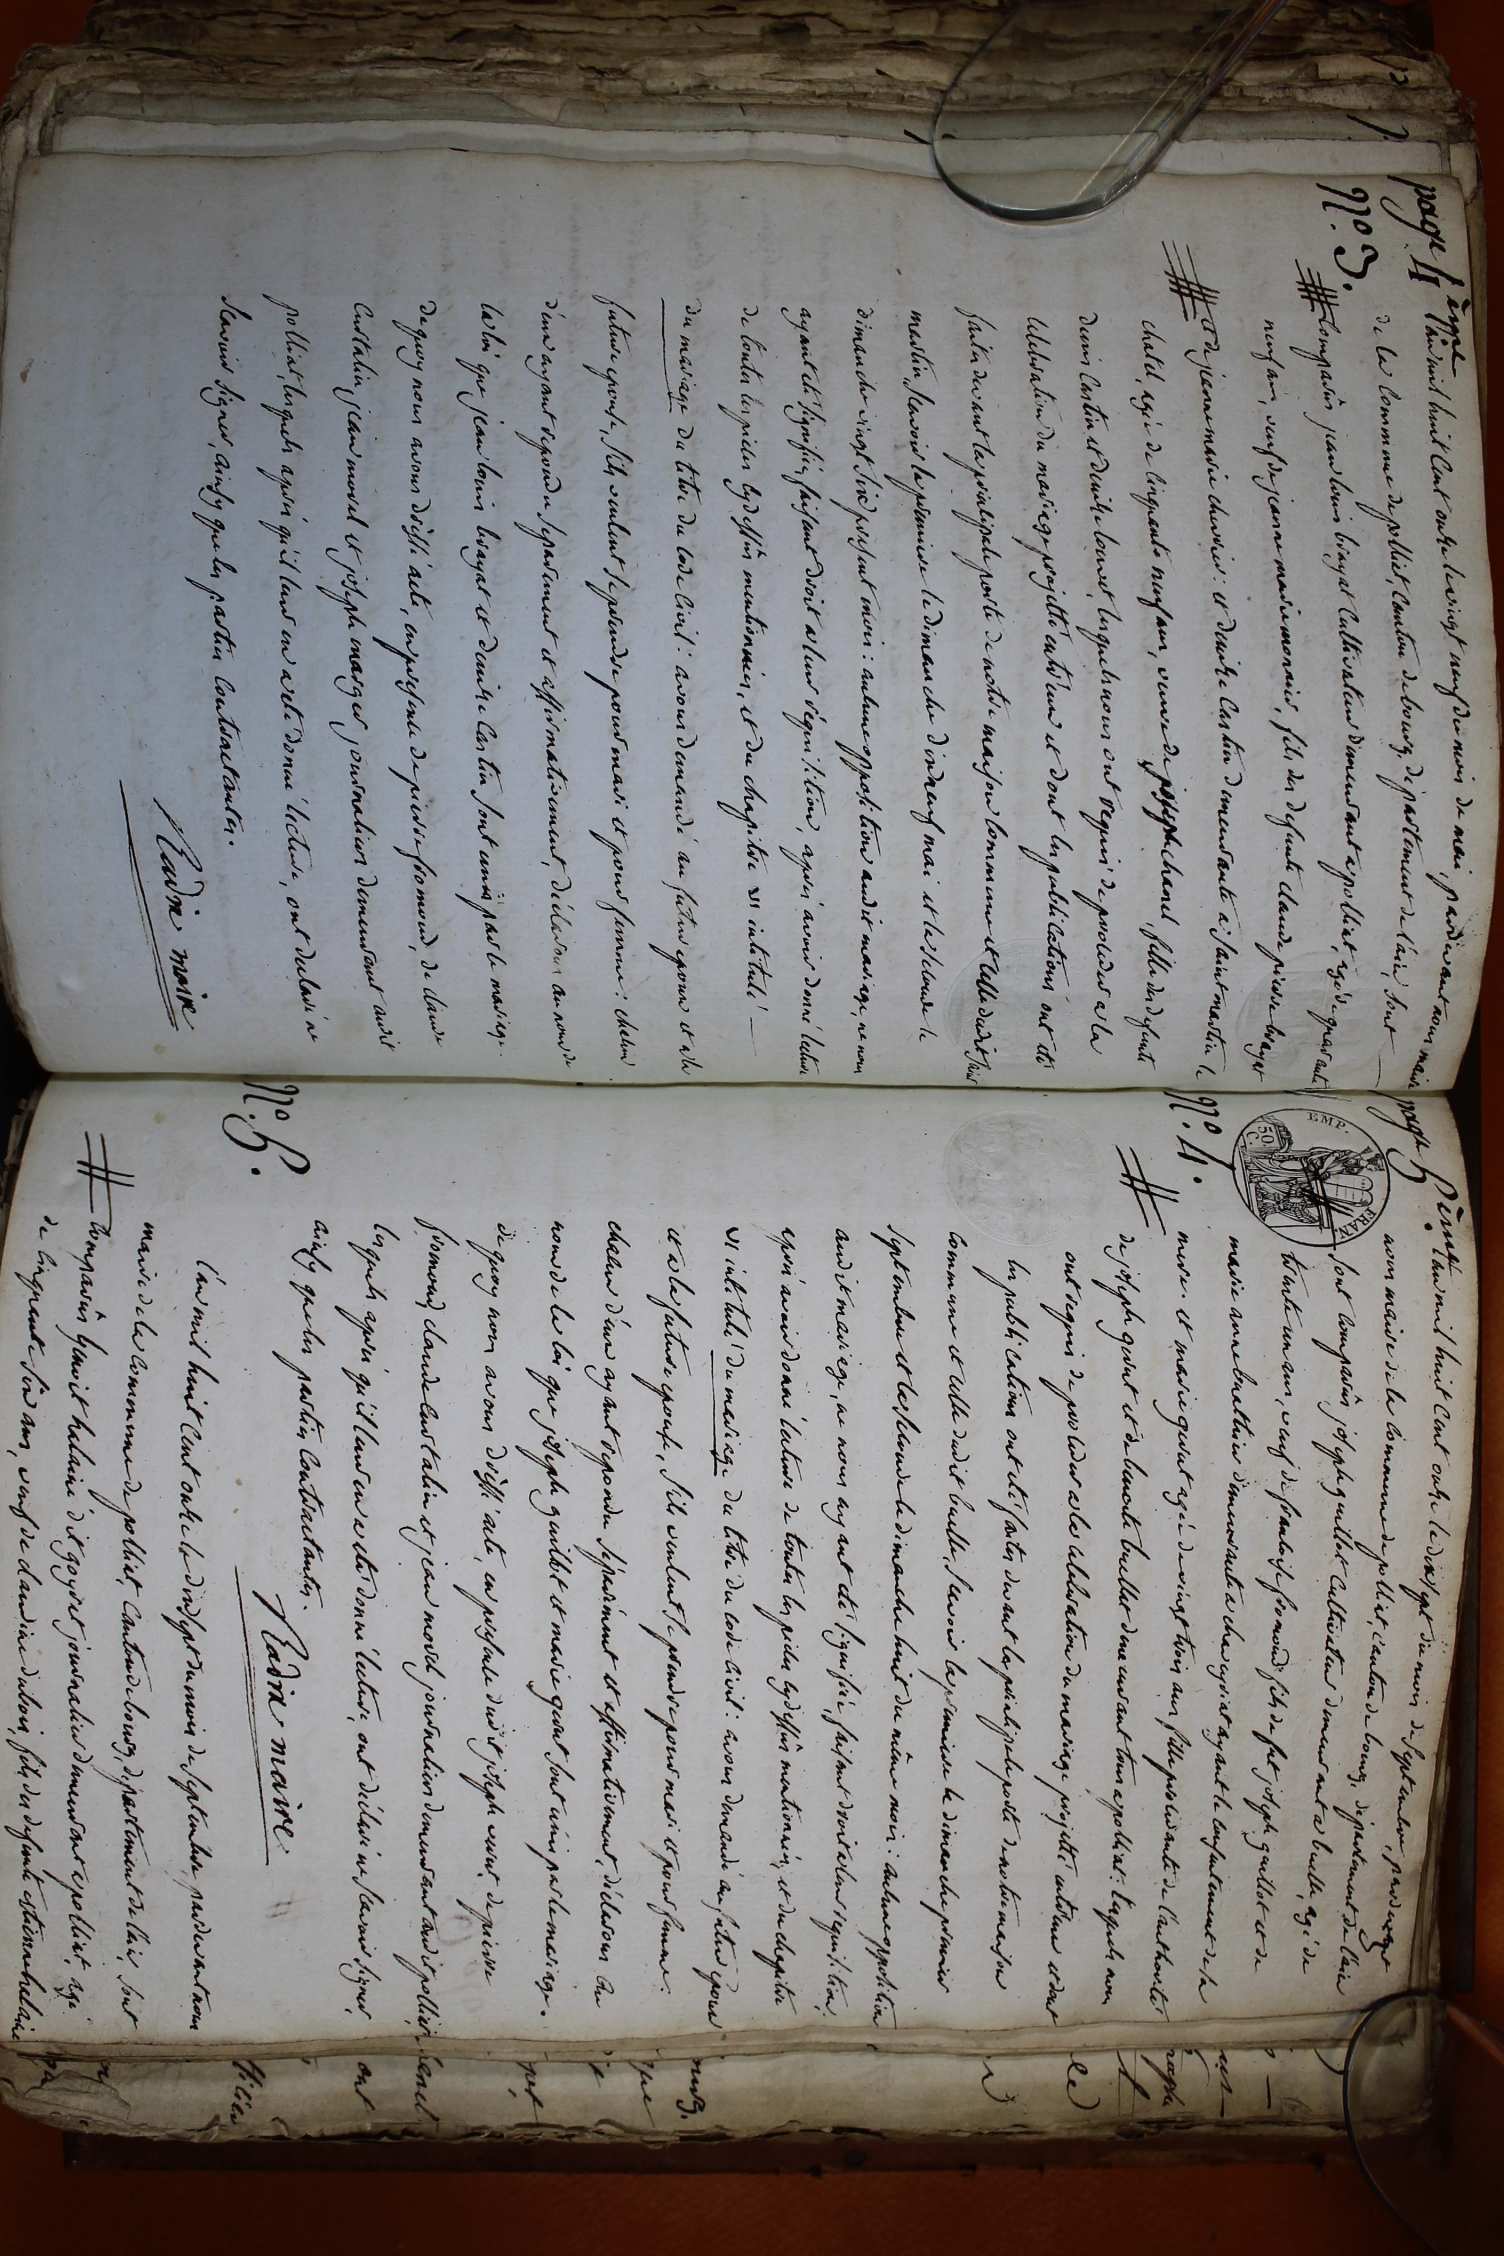 page 4ème
L'an mil huit cent onze le vingt neuf du mois de mai, pardevant nous maire
de la commune de polliat, canton de bourg, département de l'ain, sont
N.º 3.
comparûs jean louis brayat cultivateur demeurant a polliat, agé de quarante
neuf ans, veuf de jeanne marie monnier, fils des defunts claude pierre brayat
et de jeanne marie chevrier: et denise castin demeurante a saint martin le
chatel, agée de cinquante neuf ans, veuve de joseph chanel, fille des defunts
denis castin et denise bornet, lesquels nous ont requis de proceder a la
celebration du mariage projetté entr'eux et dont les publications ont été
faites devant la principale porte de notre maison commune et celle dudit saint
martin, scavoir la premiere le dimanche dixneuf mai et la seconde le
dimanche vingt six present mois: aucune opposition audit mariage, ne nous
ayant été signifiée, faisant droit a leur réquisition, après avoir donné lecture
de toutes les pieces cydessûs mentionnées, et du chapitre VI intitulé
du mariage du titre du code civil: avons demandé au futur epoux et a la
future epouse, s'ils veulent se prendre pour mari et pour femme: chacun
d'eux ayant repondu séparement et affirmativement, déclarons au nom de
la loi que jean louis brayat et denise castin sont unis par le mariage.
de quoy nous avons dréssé acte, en presence de pierre fromond, de claude
custalin, jean morel et joseph marguer journaliers demeurant audit
polliat, lesquels après qu'il leur en a eté donné lecture, ont declaré ne
scavoir signer, ainsy que les parties contractantes.
Cadre maire
page 5ème
L'an mil huit cent onze le dix sept du mois de septembre, pardevant
nous maire de la commune de polliat, canton de bourg, département de l'ain
EMP. FRAN.
50 C.
N.º 4.
sont comparûs joseph guillot cultivateur demeurant a buelle, agé de
trente un ans, veuf de françoise fromond, fils de feu joseph guillot et de
marie anne buathier demeurante a chaveyriat ayant le consentement de sa
mere: et marie guerut agée de vingt trois ans fille procedante de l'authorité
de joseph guerut et de benoite buellet demeurant tous a polliat: lesquels nous
ont requis de proceder a la celebration du mariage projetté entr'eux et dont
les publications ont eté faites devant la principale porte de notre maison
commune et celle dudit buelle, scavoir la premiere le dimanche premier
septembre et la seconde le dimanche huit du même mois: aucune opposition
audit mariage, ne nous ayant eté signifiée, faisant droit a leur réquisition,
après avoir donné lecture de toutes les pieces cydessûs mentionnées, et du chapitre
VI intitulé du mariage du titre du code civil: avons demandé au futur epoux
et a la future epouse, s'ils veulent se prendre pour mari et pour femme:
chacun d'eux ayant repondu séparement et affirmativement, déclarons au
nom de la loi que joseph guillot et marie guerut sont unis par le mariage.
de quoy nous avons dréssé acte, en presence dudit joseph guerut, de pierre
fromond, claude custalin et jean morel journaliers demeurant audit polliat,
lesquels après qu'il leur en a eté donné lecture, ont déclaré ne scavoir signer,
ainsy que les parties contractantes.
Cadre maire
N.º 5.
L'an mil huit cent onze le dix sept du mois de septembre pardevant nous
maire de la commune de polliat, canton de bourg, département de l'ain, sont
comparûs benoit halaine dit goyet journalier demeurant a polliat, agé
de cinquante six ans, veuf de claudine dubois, fils des defunts etienne halaine